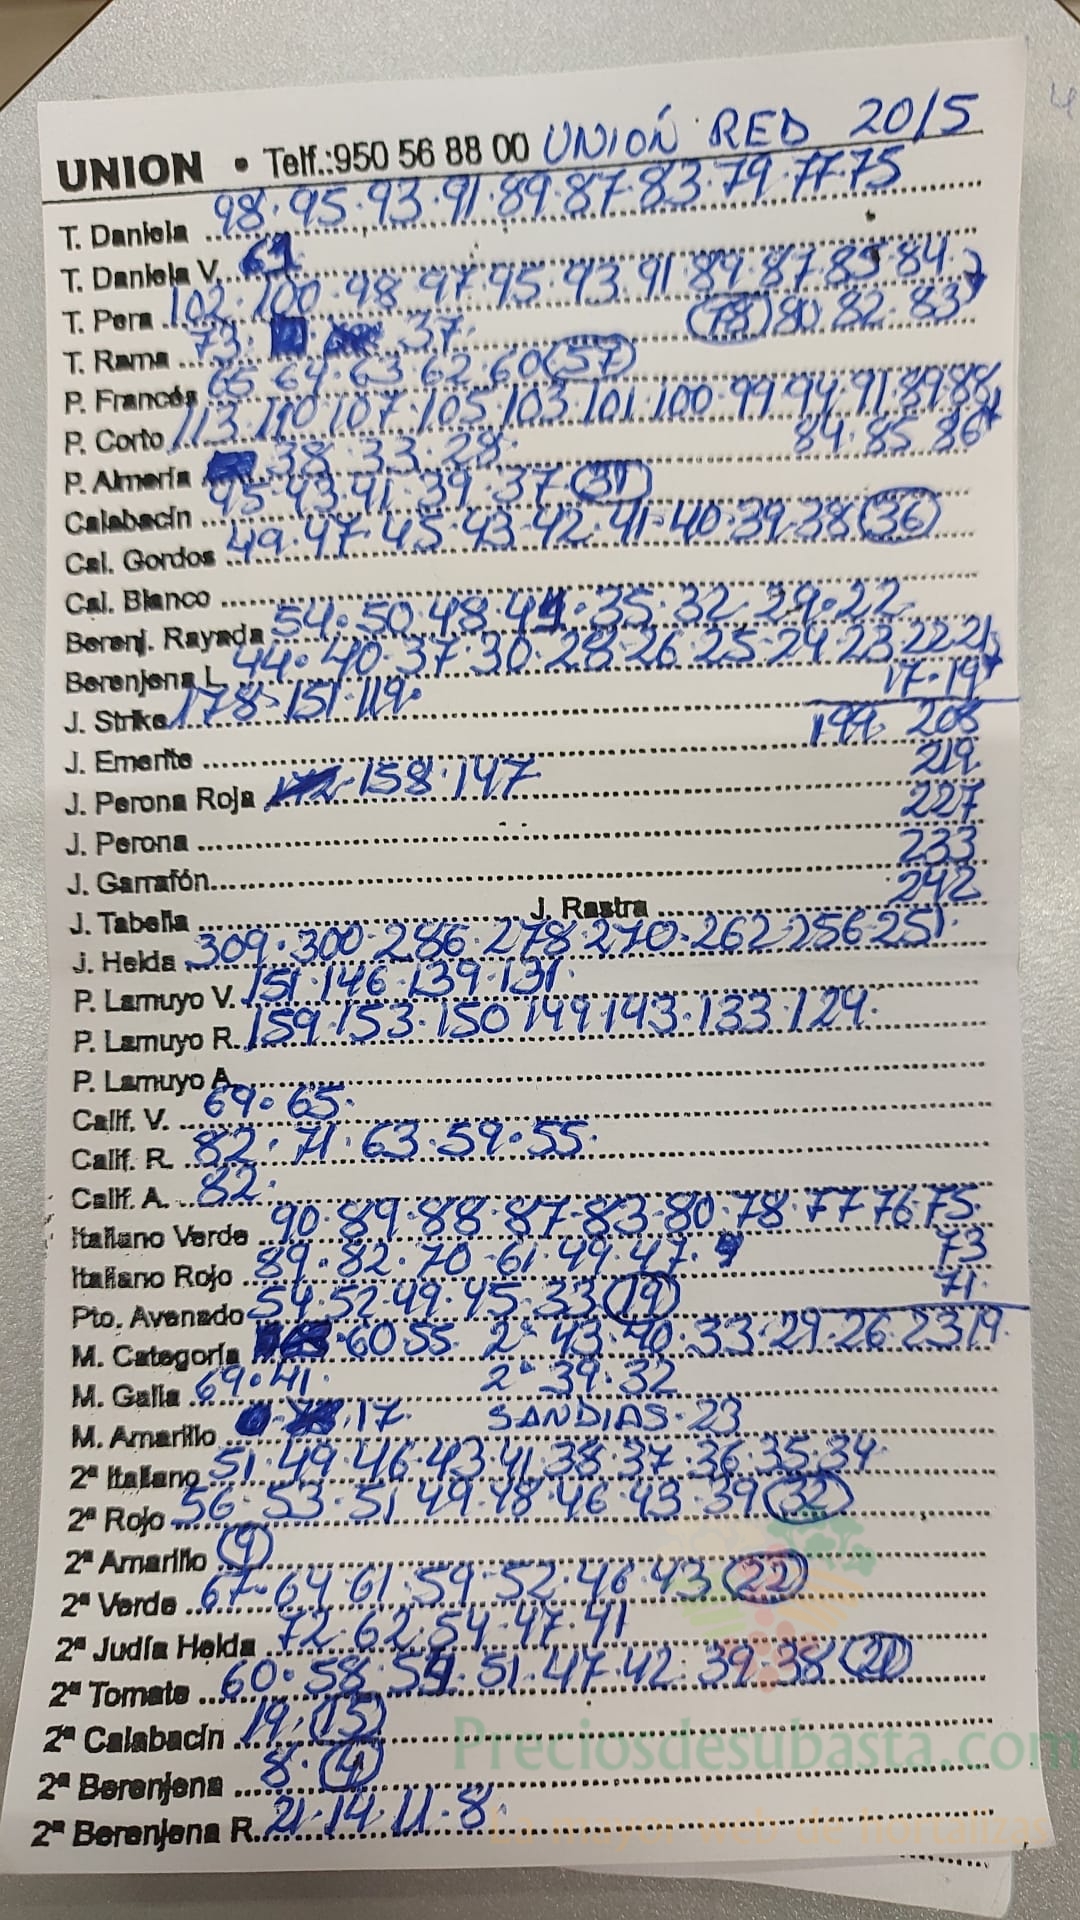 UNION • Telf.:950 56 88 00 UNIÓN RED 20/5
T. Daniela 98·95·93·91·89·87·83·79·77·75
T. Daniela V. 61
T. Pera 102·100·98·97·95·93·91·89·87·85·84
T. Rama 73· 37· (78) 80 82·83
P. Francés 65 64·63·62·60 (57)
P. Corto 113·110·107·105·103·101·100·99·94·91·89·88
P. Almería 38·33·28· 84·85·86
Calabacín 95·43·41·39·37 (31)
Cal. Gordos 49·47·45·43·42·41·40·39·38 (36)
Cal. Blanco
Berenj. Rayada 54·50·48·44·35·32·29·22
Berenjena L. 44·40·37·30·28·26·25·24·23·22·21
J. Strike 178·151·119· 17·19
J. Emerite 199· 208
219
J. Perona Roja 158·147
227
J. Perona 233
J. Garrafón 242
J. Tabella J. Rastra
J. Helda 309·300·286·278·270·262·256·251·
P. Lamuyo V. 151·146·139·131·
P. Lamuyo R. 159·153·150 149 143·133·124·
P. Lamuyo A.
Calif. V. 69·65·
Calif. R. 82·71·63·59·55·
Calif. A. 82·
Italiano Verde 90·89·88·87·83·80·78·77 76·75
Italiano Rojo 89·82·70·61·49·47· 73
71·
Pto. Avenado 54·52·49·45·33 (19)
M. Categoría 60 55· 2ª 43·40·33·29·26·23 19·
M. Galia 69·41· 2ª 39·32
M. Amarillo 17· SANDIAS·23
2ª Italiano 51·49·46·43·41·38·37·36·35·34·
2ª Rojo 56·53·51·49·48·46·43·39 (32)
2ª Amarillo (9)
2ª Verde 67·64·61·59·52·46·43 (22)
2ª Judía Helda 72·62·54·47·41
2ª Tomate 60·58·54·51·47·42·39·38 (20)
2ª Calabacín 19·(15)
2ª Berenjena 8·(4)
2ª Berenjena R. 21·14·11·8·
Preciosdesubasta.com
La mayor web de hortalizas